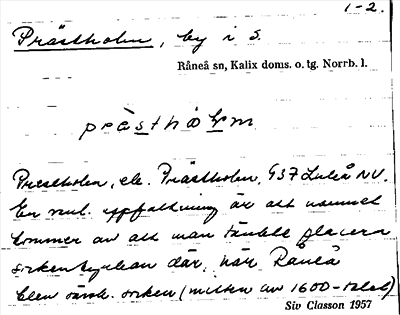 1-2.
Prästholm, by i S.
Råneå sn, Kalix doms. o. tg. Norrb. l.
prästhȯlm
Prestholm, ek. Prästholm, 937 Luleå NV.
En vanl. uppfattning är att namnet
kommer av att man tänkte placera
sockenkyrkan där, när Råneå
blev särsk. socken (mitten av 1600-talet)
Siv Classon 1957